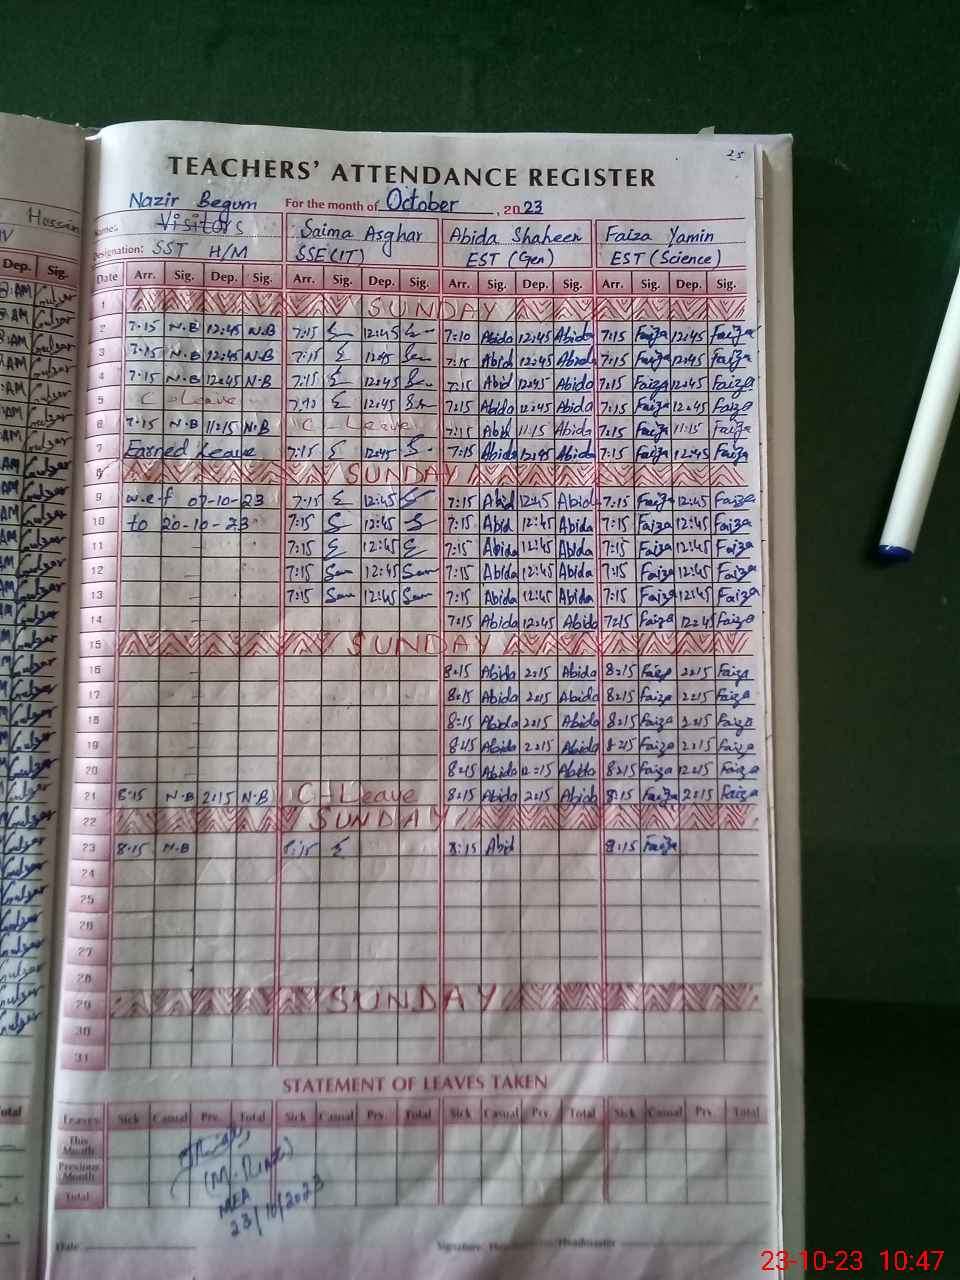 25
TEACHERS' ATTENDANCE REGISTER
Nazir Begum For the month of October, 2023
Name: Visitors Saima Asghar Abida Shaheen Faiza Yamin
Designation: SST H/M SSE(IT) EST (Gen) EST (Science)
Date Arr. Sig. Dep. Sig. Arr. Sig. Dep. Sig. Arr. Sig. Dep. Sig. Arr. Sig. Dep. Sig.
1 SUNDAY
2 7:15 N.B 12:45 N.B 7:15 12:45 7:10 Abida 12:45 Abida 7:15 Faiza 12:45 Faiza
3 7:15 N.B 12:45 N.B 7:15 12:45 7:15 Abid 12:45 Abida 7:15 Faiza 12:45 Faiza
4 7:15 N.B 12:45 N.B 7:15 12:45 7:15 Abid 12:45 Abida 7:15 Faiza 12:45 Faiza
5 C-Leave 12:45 7:15 Abida 12:45 Abida 7:15 Faiza 12:45 Faiza
6 7:15 N.B 11:15 N.B C-Leave 7:15 Abid 11:15 Abida 7:15 Faiza 11:15 Faiza
7 Earned Leave 7:15 12:45 7:15 Abida 12:45 Abida 7:15 Faiza 12:45 Faiza
8 SUNDAY
9 w.e.f 07-10-23 7:15 12:45 7:15 Abid 12:45 Abid 7:15 Faiza 12:45 Faiza
10 to 20-10-23 7:15 12:45 7:15 Abid 12:45 Abida 7:15 Faiza 12:45 Faiza
11 7:15 12:45 7:15 Abida 12:45 Abida 7:15 Faiza 12:45 Faiza
12 7:15 12:45 7:15 Abida 12:45 Abida 7:15 Faiza 12:45 Faiza
13 7:15 12:45 7:15 Abida 12:45 Abida 7:15 Faiza 12:45 Faiza
14 7:15 Abida 12:45 Abida 7:15 Faiza 12:45 Faiza
15 SUNDAY
16 8:15 Abida 2:15 Abida 8:15 Faiza 2:15 Faiza
17 8:15 Abida 2:15 Abida 8:15 Faiza 2:15 Faiza
18 8:15 Abida 2:15 Abida 8:15 Faiza 2:15 Faiza
19 8:15 Abida 2:15 Abida 8:15 Faiza 2:15 Faiza
20 8:15 Abida 12:15 Abida 8:15 Faiza 12:15 Faiza
21 8:15 N.B 2:15 N.B C-Leave 8:15 Abida 2:15 Abida 8:15 Faiza 2:15 Faiza
22 SUNDAY
23 8:15 N.B 8:15 8:15 Abid 8:15 Faiza
24
25
26
27
28
29 SUNDAY
30
31
STATEMENT OF LEAVES TAKEN
Leaves Sick Casual Prv. Total Sick Casual Prv. Total Sick Casual Prv. Total Sick Casual Prv. Total
This Month
Previous Month
Total
MEA
23/10/2023
Date: Signature: Headmaster
23-10-23 10:47